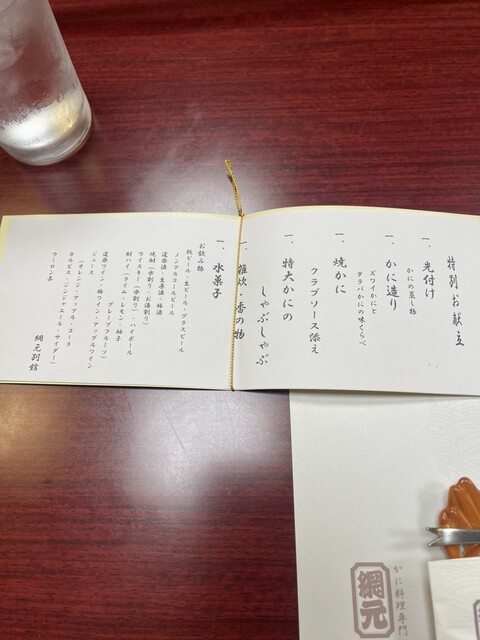 特別お献立
一、先付け
かにの蒸し物
一、かに造り
ズワイかにと
タラバかにの味くらべ
一、焼かに
クラブソース添え
一、特大かにの
しゃぶしゃぶ
一、雑炊・香の物
一、水菓子
お飲み物
瓶ビール・生ビール・グラスビール
ノンアルコールビール
道楽酒・生原酒・梅酒
焼酎(水割り・お湯割り)
ウイスキー(水割り)・ハイボール
酎ハイ(ライム・レモン・柚子
グレープフルーツ)
道楽ワイン・梅ワイン・アップルワイン
ジュース
(オレンジ・アップル・コーラ
カルピス・ジンジャエール・サイダー)
ウーロン茶
網元別館
かに料理専門
網元